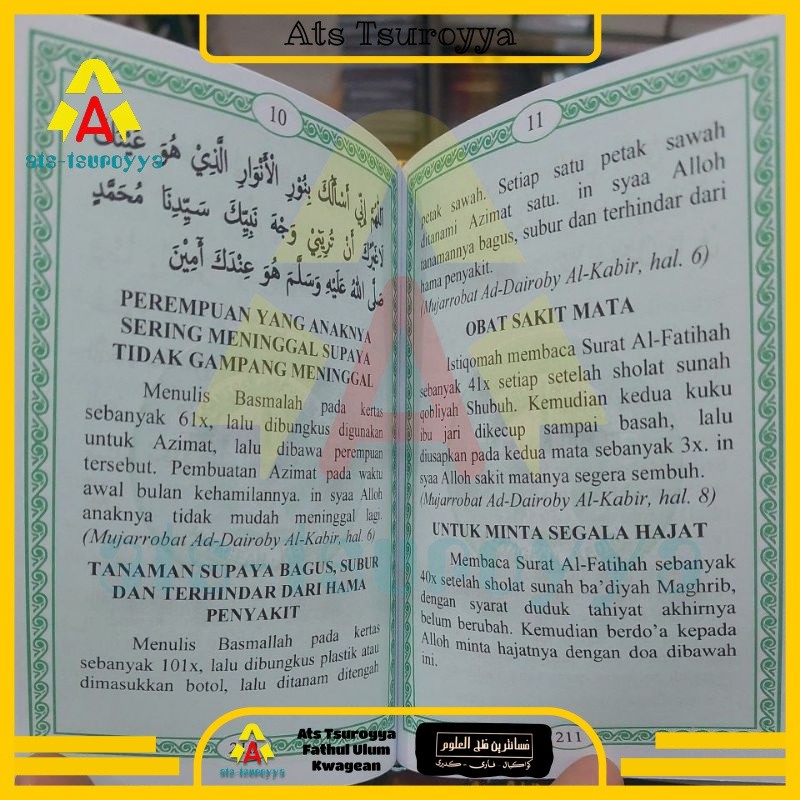 Ats Tsuroyya
ats-tsuroyya
10
اَللّٰهُمَّ اِنِّي أَسْأَلُكَ بِنُوْرِ الْأَنْوَارِ الَّذِيْ هُوَ عَيْنُكَ
لَاغَيْرُكَ أَنْ تُرِيَنِيْ وَجْهَ نَبِيِّكَ سَيِّدِنَا مُحَمَّدٍ
صَلَّى اللهُ عَلَيْهِ وَسَلَّمَ هُوَ عِنْدَكَ أٰمِيْنَ
PEREMPUAN YANG ANAKNYA
SERING MENINGGAL SUPAYA
TIDAK GAMPANG MENINGGAL
Menulis Basmalah pada kertas
sebanyak 61x, lalu dibungkus digunakan
untuk Azimat, lalu dibawa perempuan
tersebut. Pembuatan Azimat pada waktu
awal bulan kehamilannya. in syaa Alloh
anaknya tidak mudah meninggal lagi.
(Mujarrobat Ad-Dairoby Al-Kabir, hal. 6)
TANAMAN SUPAYA BAGUS, SUBUR
DAN TERHINDAR DARI HAMA
PENYAKIT
Menulis Basmallah pada kertas
sebanyak 101x, lalu dibungkus plastik atau
dimasukkan botol, lalu ditanam ditengah
11
petak sawah. Setiap satu petak sawah
ditanami Azimat satu. in syaa Alloh
tanamannya bagus, subur dan terhindar dari
hama penyakit.
(Mujarrobat Ad-Dairoby Al-Kabir, hal. 6)
OBAT SAKIT MATA
Istiqomah membaca Surat Al-Fatihah
sebanyak 41x setiap setelah sholat sunah
qobliyah Shubuh. Kemudian kedua kuku
ibu jari dikecup sampai basah, lalu
diusapkan pada kedua mata sebanyak 3x. in
syaa Alloh sakit matanya segera sembuh.
(Mujarrobat Ad-Dairoby Al-Kabir, hal. 8)
UNTUK MINTA SEGALA HAJAT
Membaca Surat Al-Fatihah sebanyak
40x setelah sholat sunah ba'diyah Maghrib,
dengan syarat duduk tahiyat akhirnya
belum berubah. Kemudian berdo'a kepada
Alloh minta hajatnya dengan doa dibawah
ini.
ats-tsuroyya
Ats Tsuroyya
Fathul Ulum
Kwagean
فسانترين فتح العلوم
211